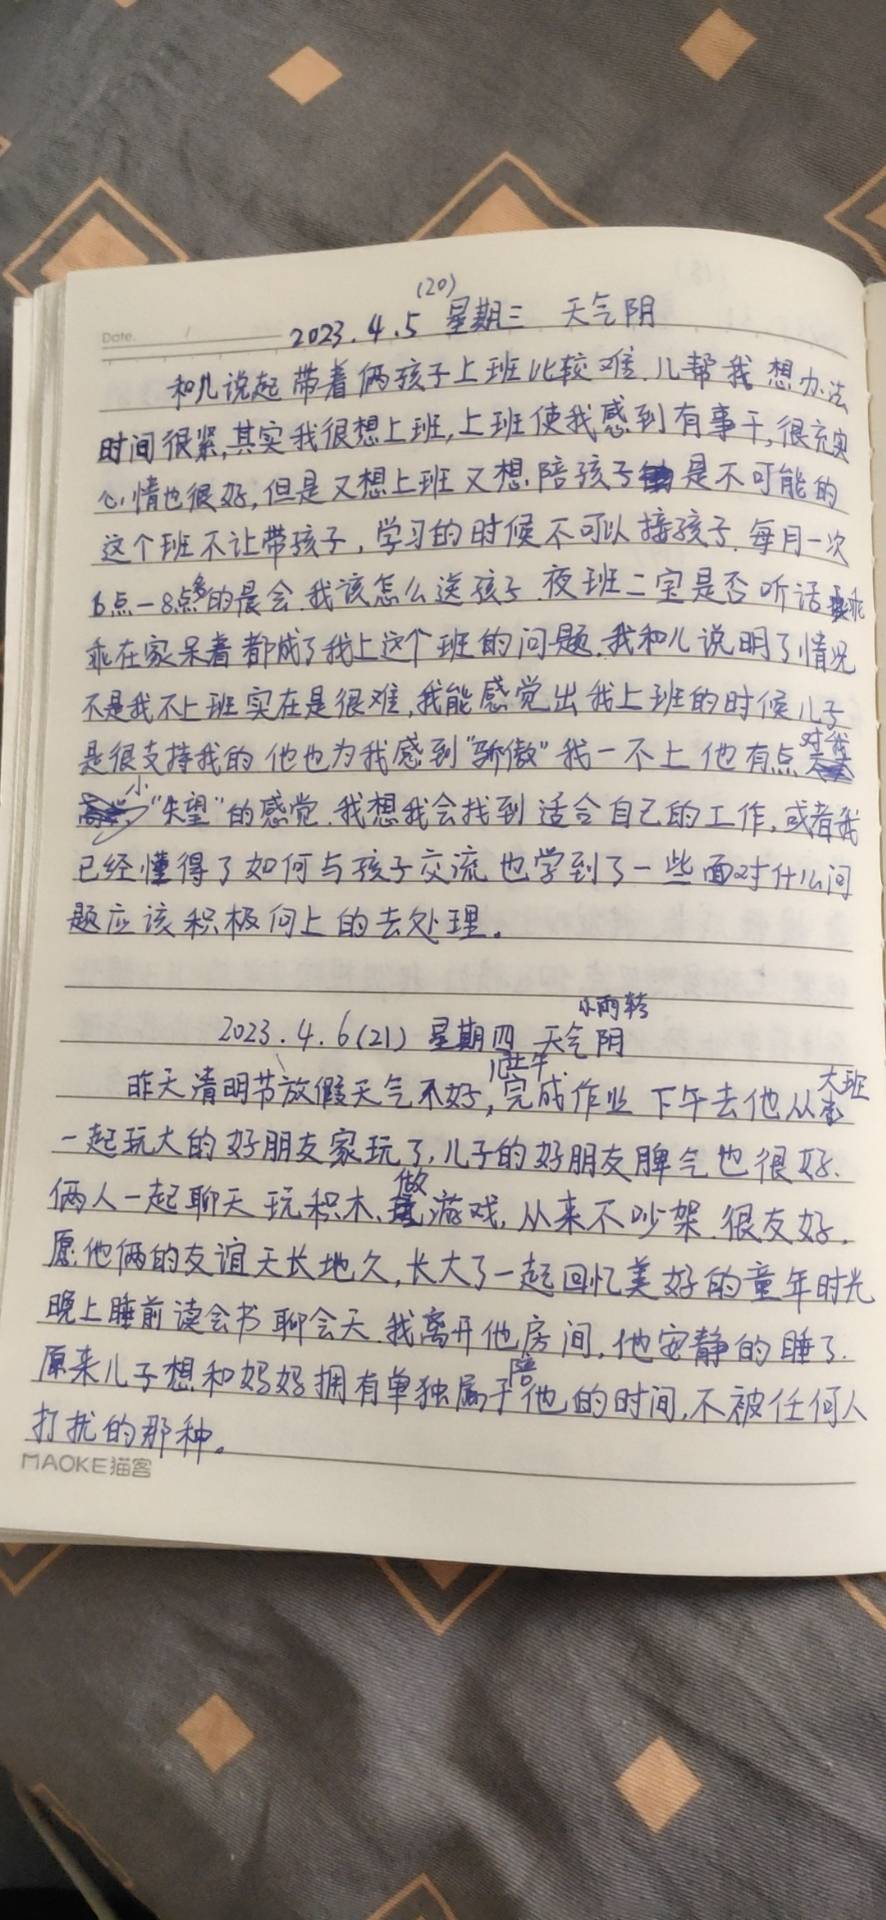 (20)
Date. /
2023.4.5 星期三 天气阴
和儿说起带着俩孩子上班比较难.儿帮我想办法
时间很紧,其实我很想上班,上班使我感到有事干,很充实
心情也很好,但是又想上班又想陪孩子是不可能的
这个班不让带孩子,学习的时候不可以接孩子.每月一次
6点-8点多的晨会.我该怎么送孩子.夜班二宝是否听话乖
乖在家呆着都成了我上这个班的问题.我和儿说明了情况
不是我不上班实在是很难,我能感觉出我上班的时候儿子
是很支持我的他也为我感到"骄傲"我一不上他有点对我
小"失望"的感觉.我想我会找到适合自己的工作,或者我
已经懂得了如何与孩子交流也学到了一些面对什么问
题应该积极向上的去处理。
小雨转
2023.4.6(21) 星期四 天气阴
昨天清明节放假天气不好,上午完成作业 下午去他从大班
一起玩大的好朋友家玩了,儿子的好朋友脾气也很好.
俩人一起聊天玩积木.做游戏,从来不吵架.很友好.
愿他俩的友谊天长地久,长大了一起回忆美好的童年时光
晚上睡前读会书聊会天.我离开他房间,他安静的睡了.
原来儿子想和妈妈拥有单独属于陪他的时间,不被任何人
打扰的那种。
MAOKE猫客